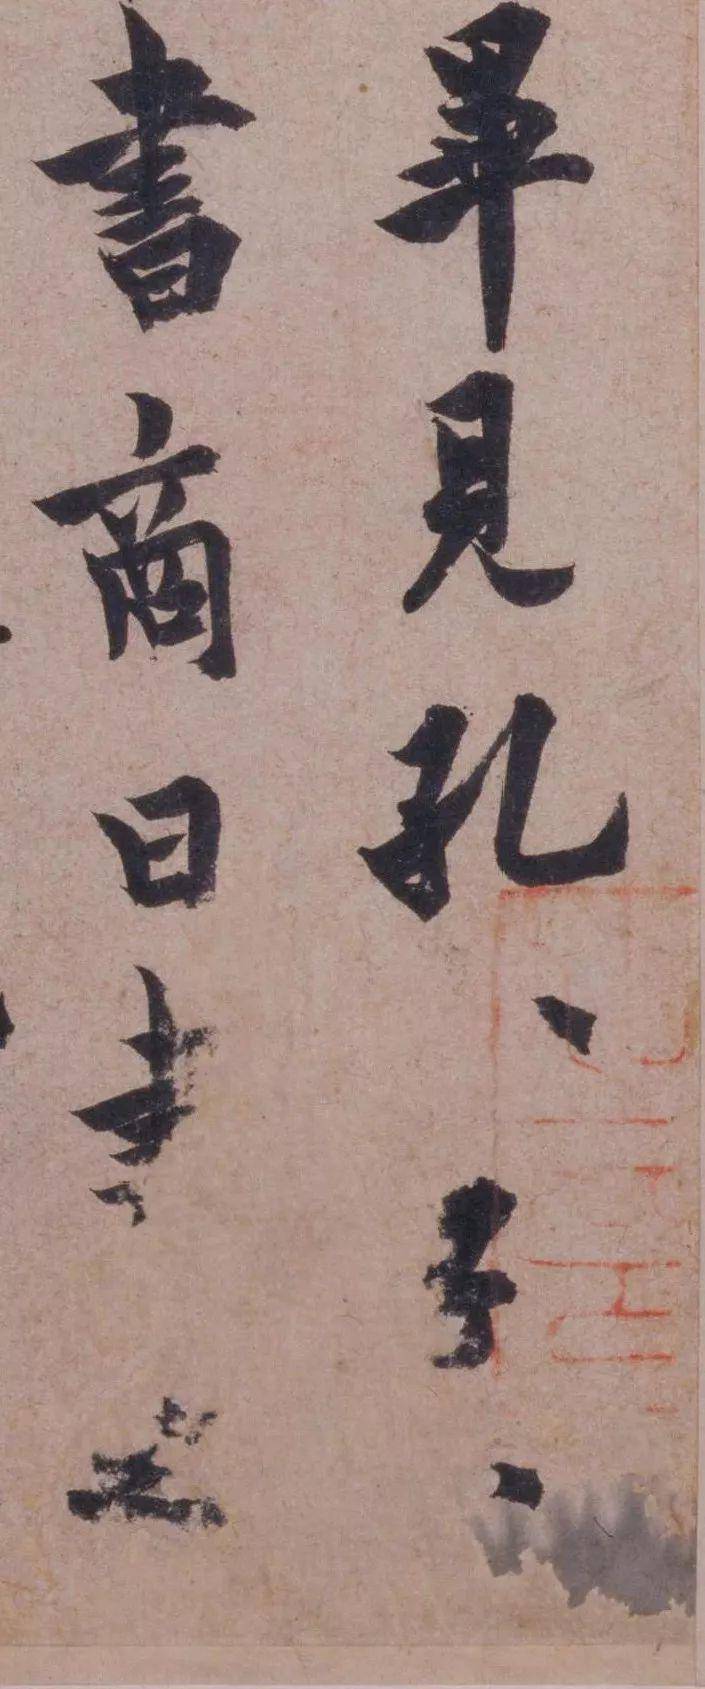 畢見孔、子、
書商曰書之